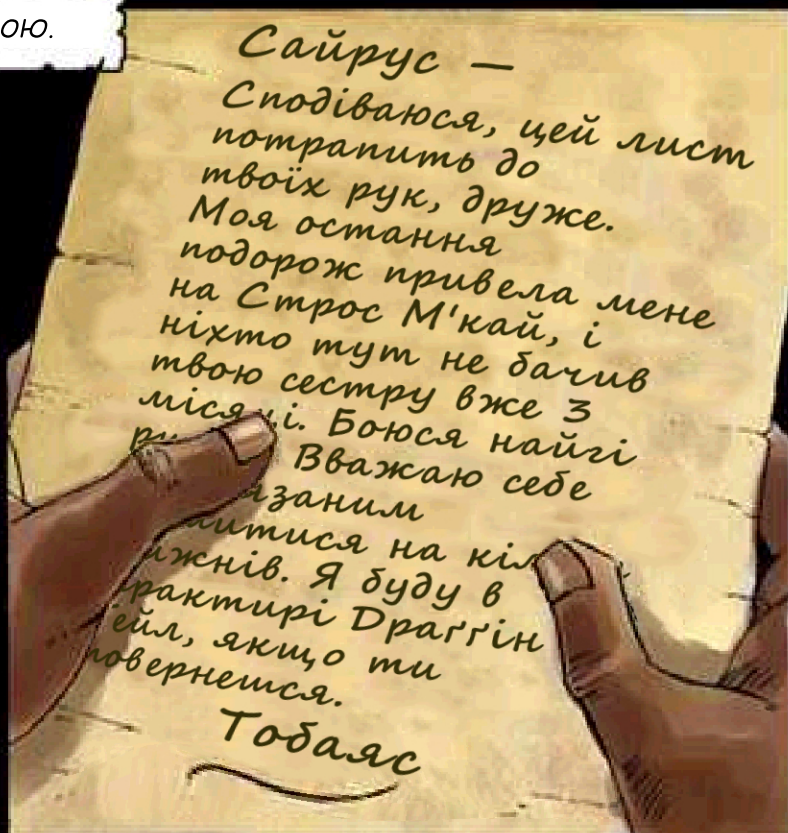 ОЮ.
Сайрус —
Сподіваюся, цей лист
потрапить до
твоїх рук, друже.
Моя остання
подорож привела мене
на Строс М'кай, і
ніхто тут не бачив
твою сестру вже 3
місяці. Боюся найгі
Вважаю себе
язаним
литися на кіл
ижнів. Я буду в
рактирі Dраґґін
ейл, якщо ти
повернешся.
Тобаяс